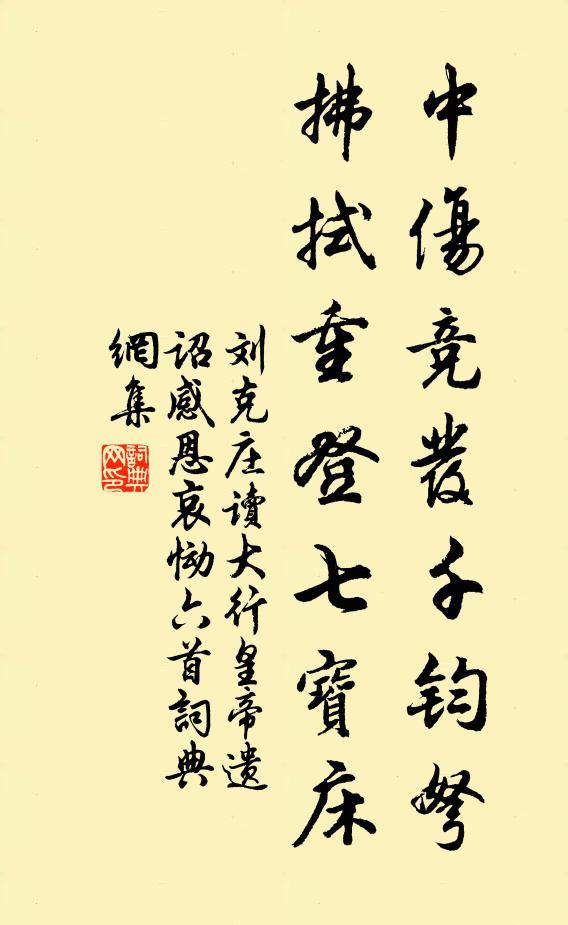 中傷竞發千鈞弩
拂拭重登七寶床
刘克庄讀大行皇帝遗
詔感恩哀恸六首詞典
網集
詞典
网印